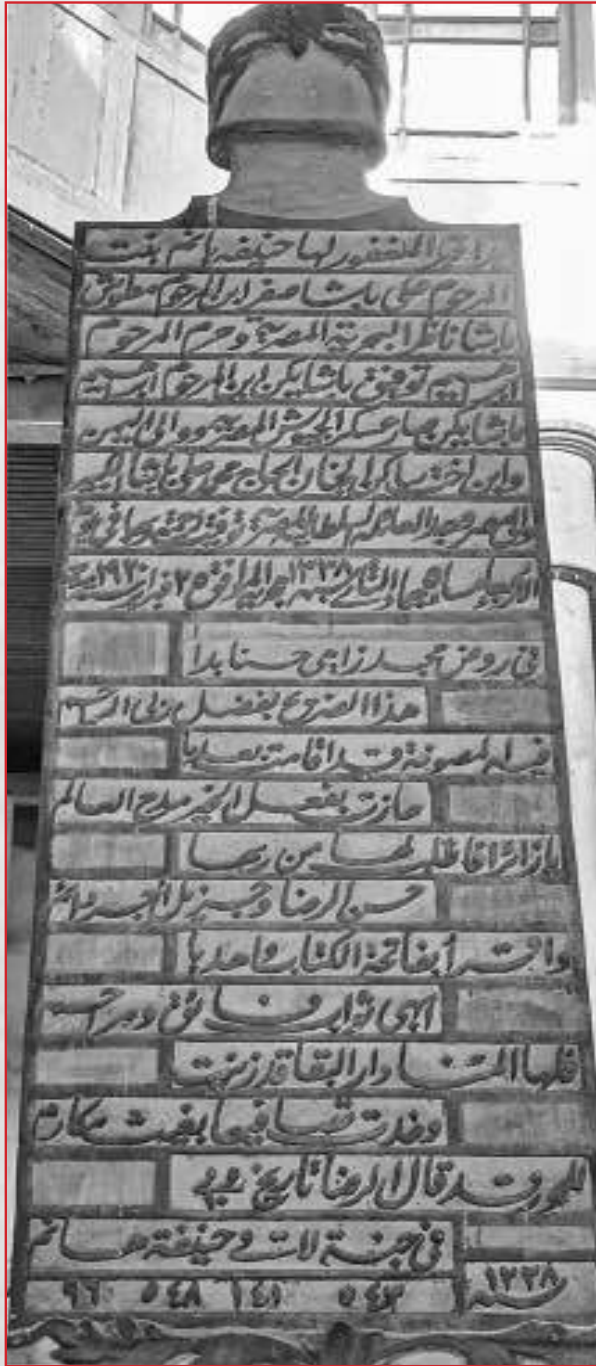 المغفور لها حنيفه هانم بنت
المرحوم على باشا صفر ابن المرحوم مطوش
باشا ناظر البحرية المصرية وحرم المرحوم
ابرهيم توفيق باشا يكن ابن المرحوم ابرهيم
باشا يكن سارعسكر الجيوش المصريه ووالى اليمن
وابن اخت ساكن الجنان الحاج محمد على باشا الكبير
والى مصر وجد العائلة السلطانية المصرية توفيت
الاربعا الثانى سنة ١٣٣٨ هجرية الموافق ٢٥ فبراير سنة ١٩٢٠
في روض مجد زاهى حسنا بدا
هذا الضريح بفضل ربى الرحيم
فيه المصونة قد اقامت بعد ما
حازت بفعل الخير مدح العالم
يا زائرا فاطلب لها من ربها
حسن الرضا وجزيل أجر دائم
واقرأ بفاتحة الكتاب واهدها
ابهى ثواب فائق ومراحم
فلها الهنا دار البقا قد زينت
وغدت فيها مكارم
للحور قد قال الرضا تاريخ
في جنة حنيفة هانم
سنة ١٣٣٨
٥٤٣ ٥٤٨ ٩٦